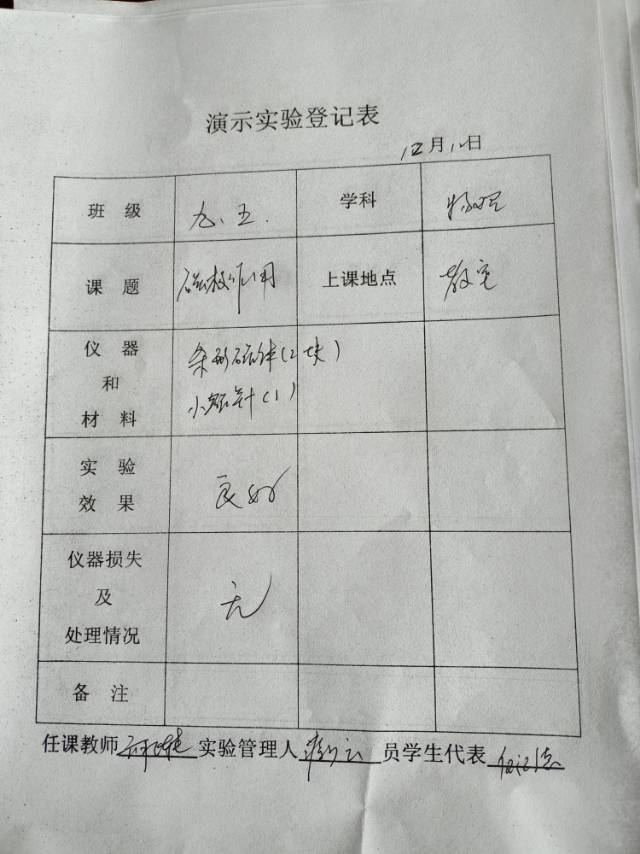 演示实验登记表
12月12日
班 级 九.五. 学科 物理
课 题 磁极作用 上课地点 教室
仪 器
和
材 料
条形磁体(2块)
小磁针(1)
实 验
效 果
良好
仪器损失
及
处理情况
无
备 注
任课教师 实验管理人 员学生代表